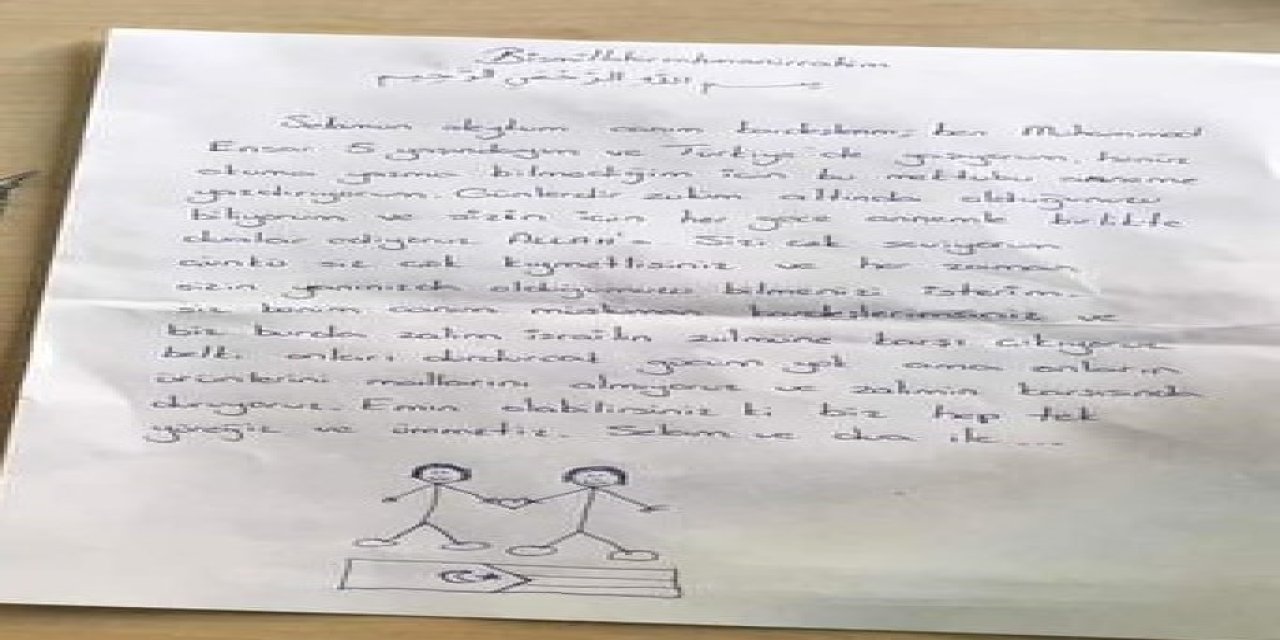 Bismillahirrahmanirrahim
بسم الله الرحمن الرحيم
Selamun aleyküm canım kardeşlerim, ben Muhammed
Ensar. 5 yaşındayım ve Türkiye de yaşıyorum, henüz
okuma yazma bilmediğim için bu mektubu anneme
yazdırıyorum. Günlerdir zulüm altında olduğunuzu
biliyorum ve sizin için her gece annemle birlikte
dualar ediyoruz ALLAH'a. Sizi çok seviyorum
çünkü siz çok kıymetlisiniz ve her zaman
sizin yanınızda olduğumuzu bilmenizi isterim.
Siz benim canım müslüman kardeşlerimsiniz ve
biz burda zalim israilin zulmüne karşı çıkıyoruz
belki onları durduracak gücüm yok ama onların
ürünlerini mallarını almıyoruz ve zalimin karşısında
duruyoruz. Emin olabilirsiniz ki biz hep tek
yüreğiz ve ümmetiz. Selam ve dua ile ....